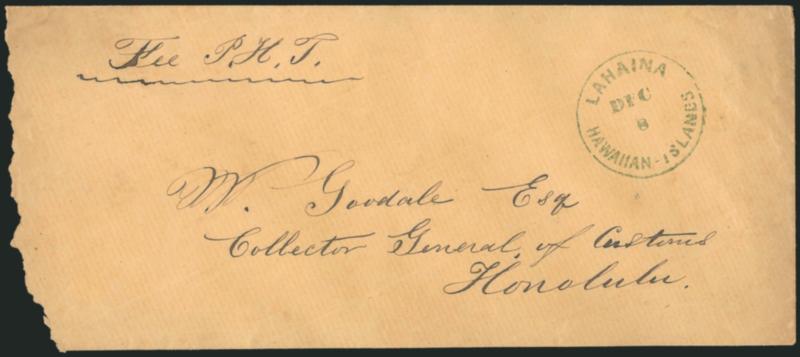 Fee P.H.T.
LAHAINA
DEC
8
HAWAIIAN-ISLANDS
W. Goodale Esq
Collector General, of Customs
Honolulu.